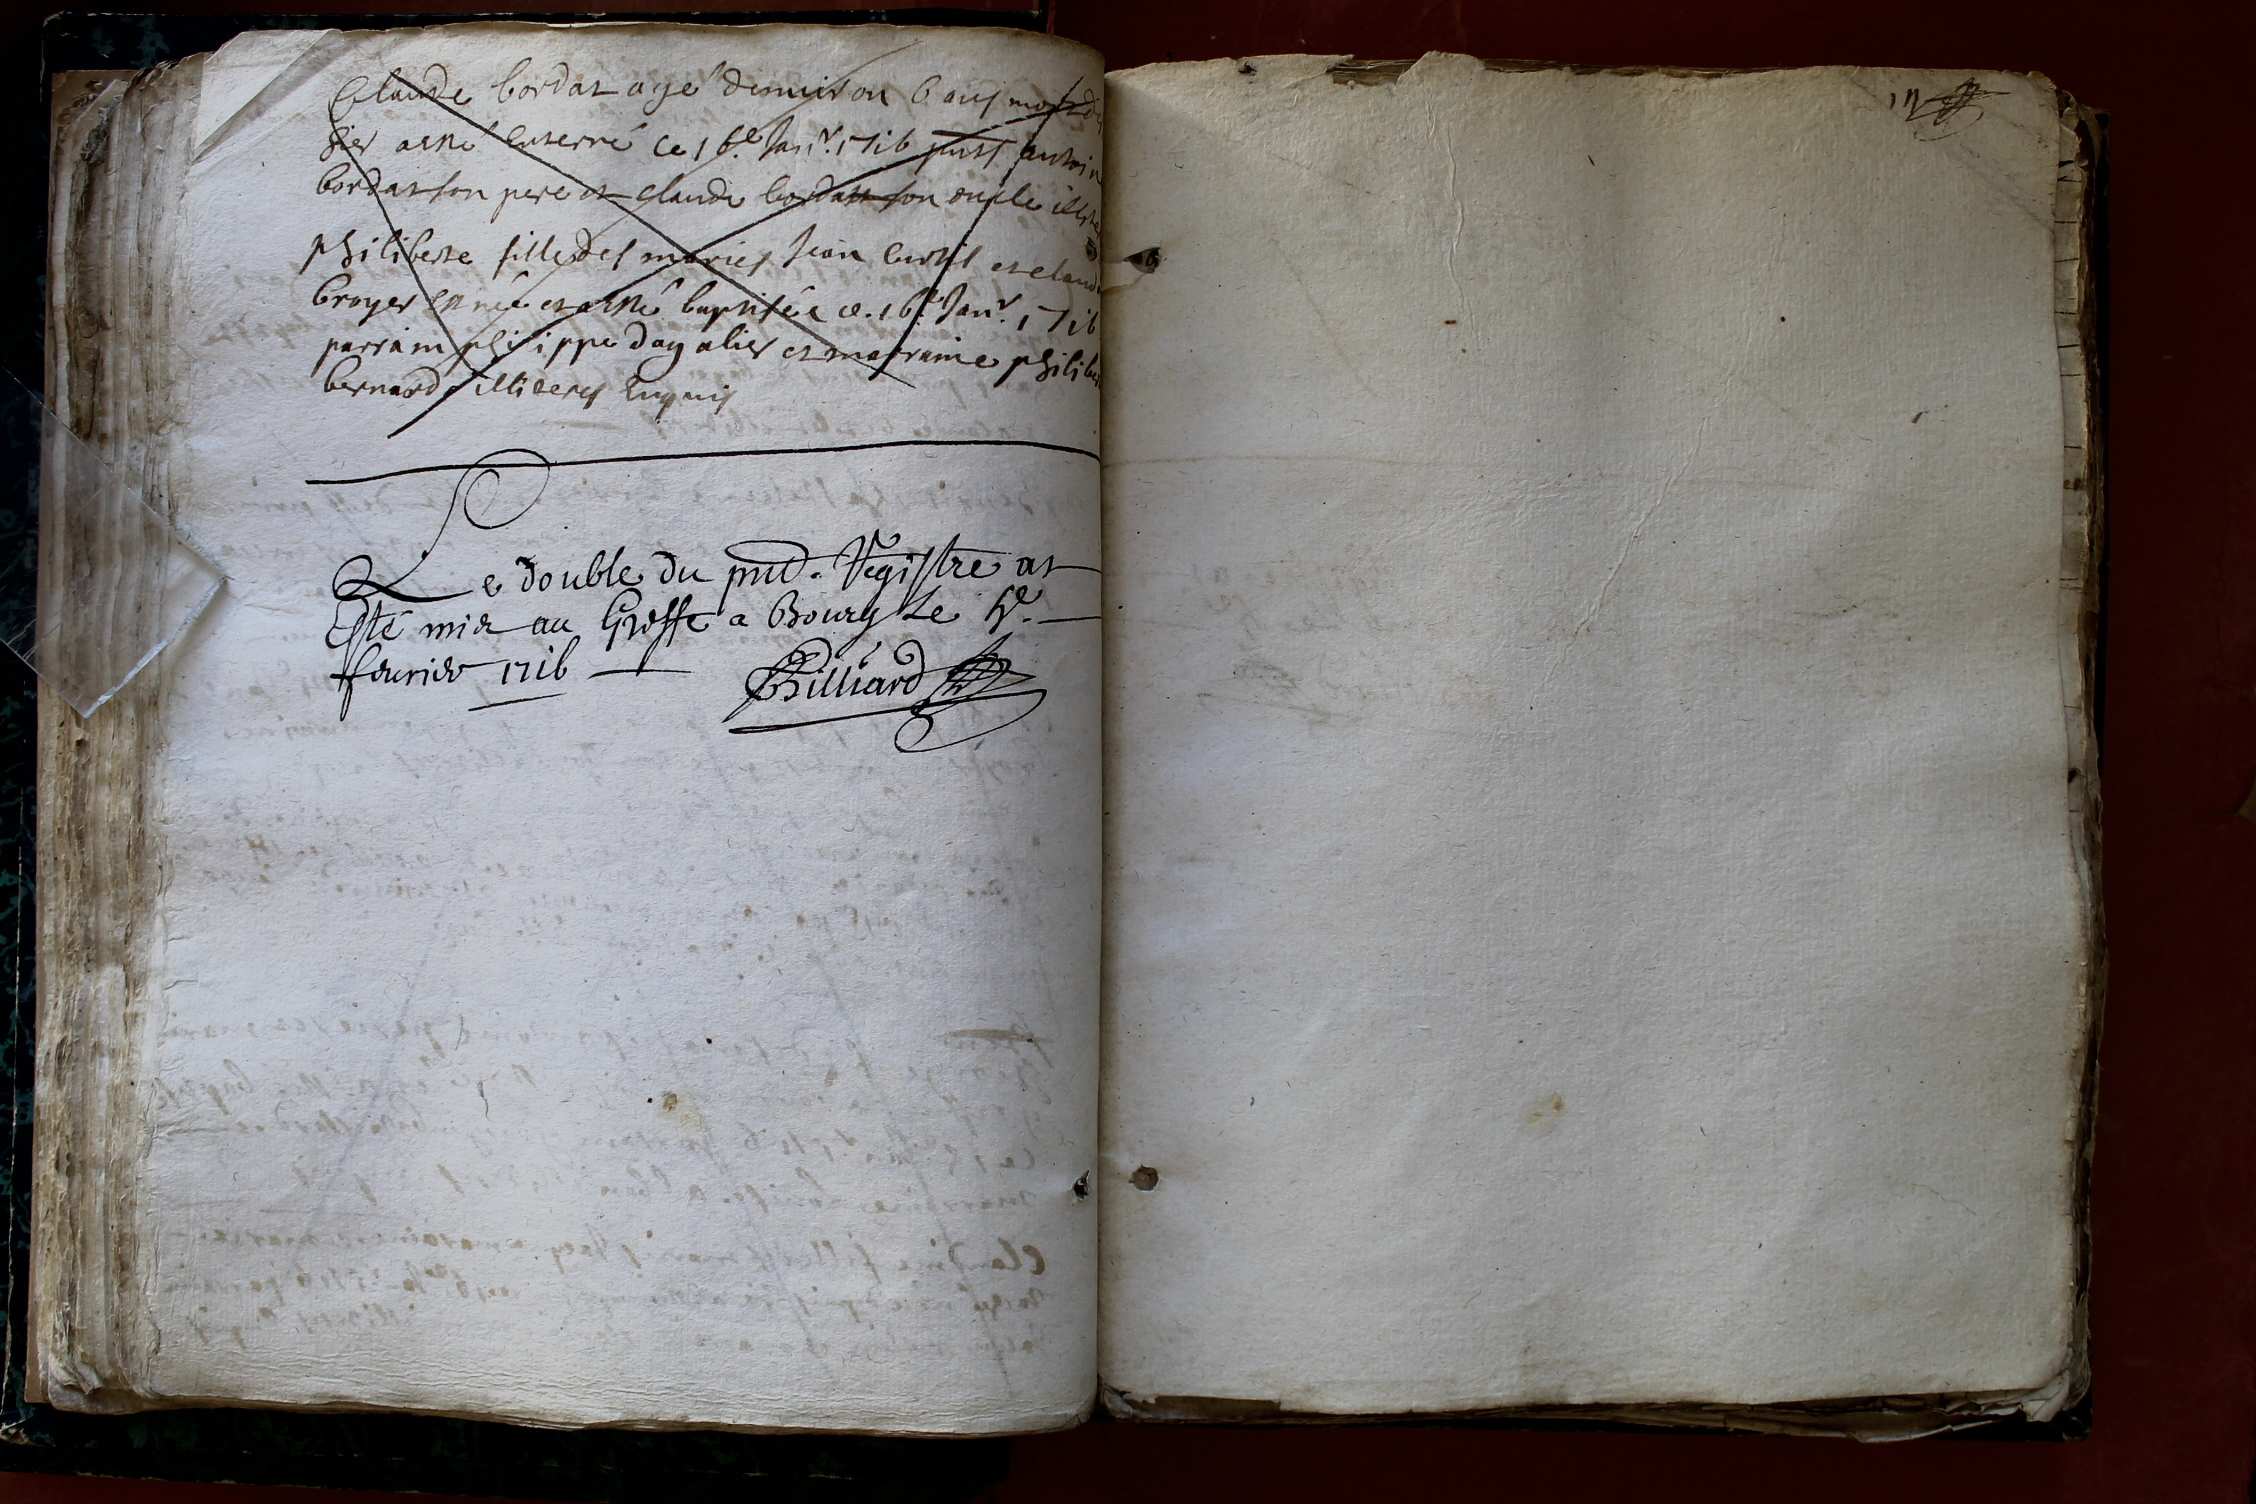 Claude bordat agé denviron 6 ans mort
hier a esté enterré ce 16.e Janv.r 1716 pnts antoin
bordat son pere et Claude bordat son oncle
philiberte fille des mariés Jean curtil et claud
broyer est née et a esté baptisée ce 16.e Janv.r 1716
parrain philippe dagalier et marraine philiber
bernard illiteres enquis
Le double du pnt. Registre at
Esté mis au Greffe a Bourg Le
feurier 1716 Billiard